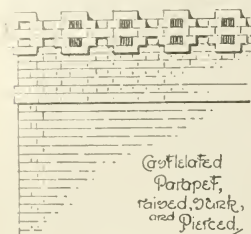 Castlelated
Parapet,
raised, Sunk,
and Pierced.